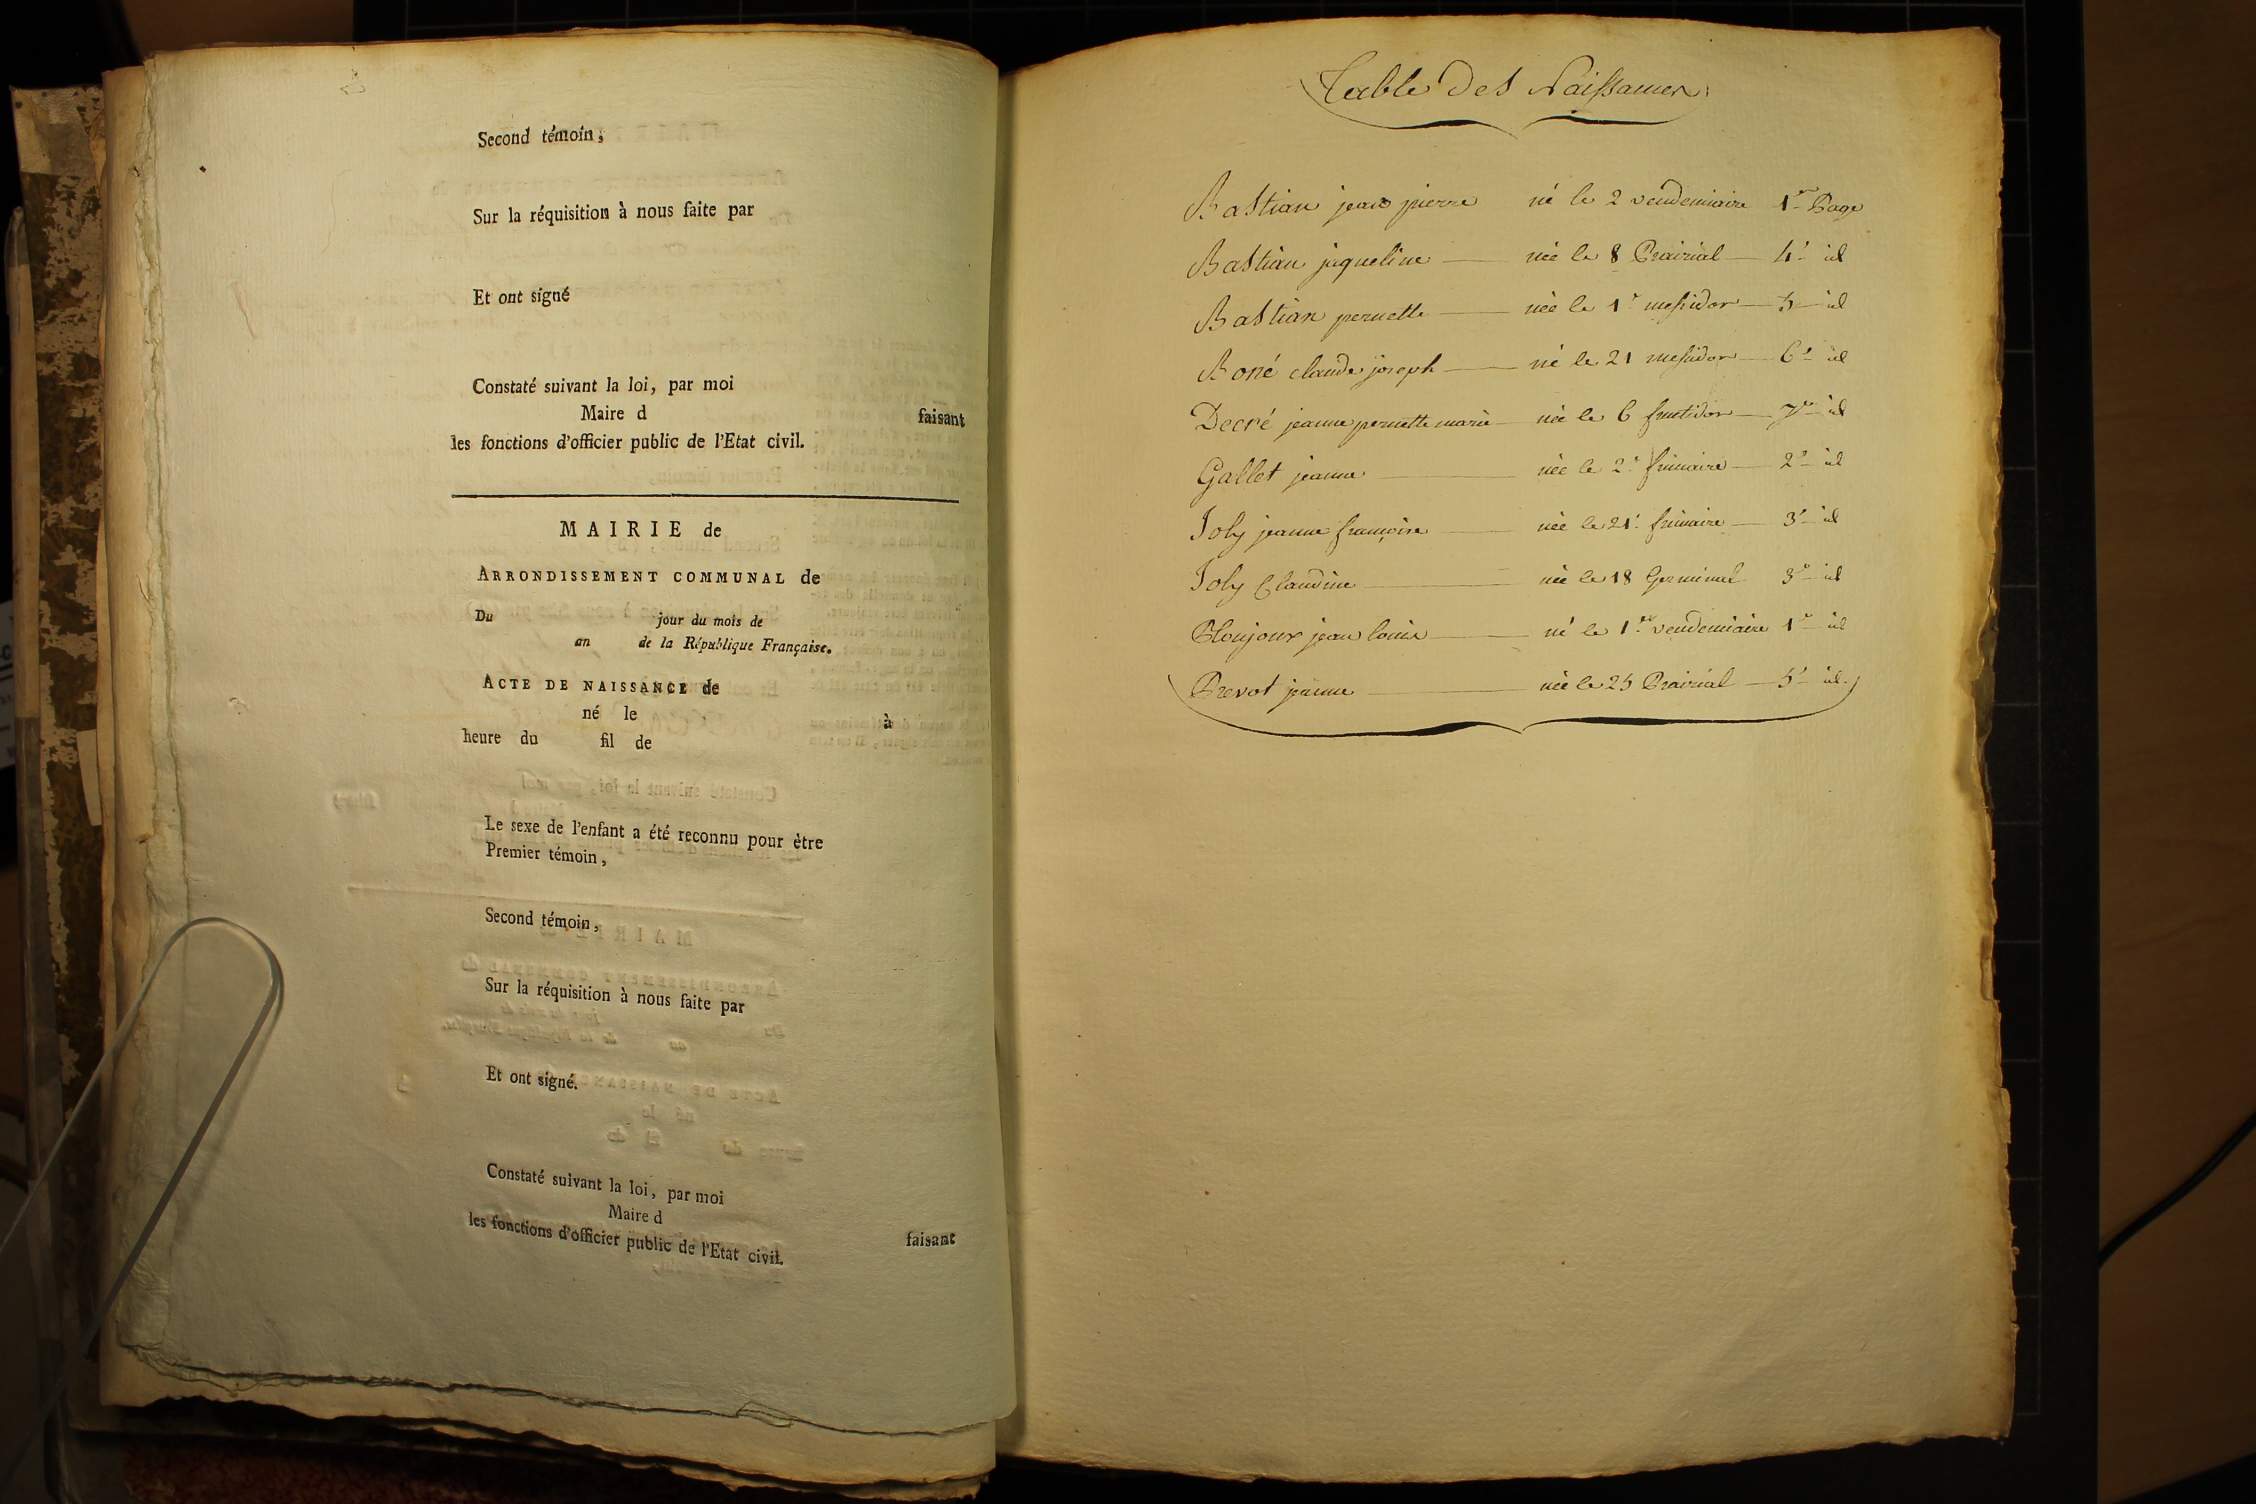 Second témoin,
Sur la réquisition à nous faite par
Et ont signé
Constaté suivant la loi, par moi
Maire d faisant
les fonctions d'officier public de l'Etat civil.
MAIRIE de
ARRONDISSEMENT COMMUNAL de
Du jour du mois de
an de la République Française.
ACTE DE NAISSANCE de
né le à
heure du fil de
Le sexe de l'enfant a été reconnu pour être
Premier témoin,
Second témoin,
Sur la réquisition à nous faite par
Et ont signé.
Constaté suivant la loi, par moi
Maire d
les fonctions d'officier public de l'Etat civil. faisant
Table Des Naissances
Bastian jean pierre né le 2 vendemiaire 1re Page
Bastian jaqueline née le 8 Prairial 4e id
Bastian pernette née le 1r messidor 5 id
Boné claude joseph né le 21 messidor 6e id
Decré jeanne pernette marie née le 6 fructidor 7e id
Gallet jeanne née le 2e frimaire 2e id
Joly jeanne françoise née le 21e frimaire 3e id
Joly Claudine née le 18 Germinal 3e id
Ploujoux jean louis né le 1er vendemiaire 1e id
Prevot jeanne née le 25 Prairial 5e id.